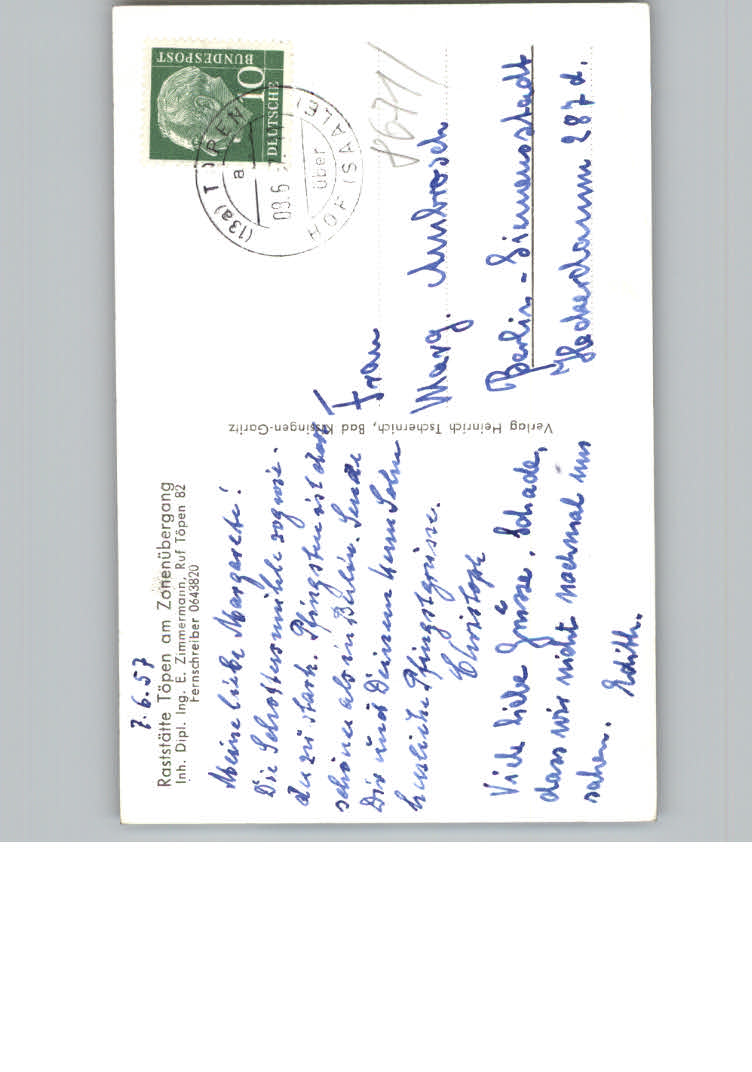 7.6.57
Raststätte Töpen am Zonenübergang
Inh. Dipl. Ing. E. Zimmermann, Ruf Töpen 82
Fernschreiber 0643820
Meine liebe Margarete!
Die Schottermühle zog wie-
der zu stark. Pfingsten ist eben
schöner als in Berlin. Sende
Dir und Deinem Herrn Sohn
herzliche Pfingstgrüsse.
Christoph
Viele liebe Grüsse. Schade,
dass wir nicht nochmal uns
sahen. Edith.
Verlag Heinrich Tschernich, Bad Kissingen-Garitz
DEUTSCHE
BUNDESPOST
10
(13a) TÖPEN
a
08.6.5
über
HOF (SAALE)
8671/
Frau
Marg. Ambrosch
Berlin-Siemensstadt
Heckerdamm 287 d.